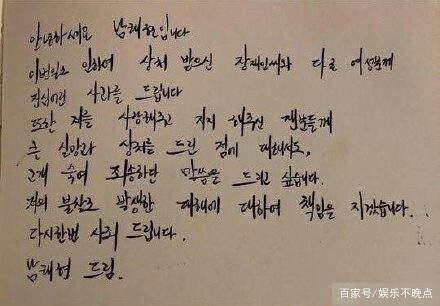 안녕하세요 남태현입니다
이번일로 인하여 상처 받으신 장재인씨와 다른 여성분께
진심어린 사과를 드립니다
또한 저를 사랑해주고 지지 해주신 팬분들께
큰 실망과 상처를 드린 점에 대해서도,
고개 숙여 죄송하단 말씀을 드리고 싶습니다.
저의 불찰로 발생한 피해에 대하여 책임을 지겠습니다.
다시한번 사죄 드립니다.
남태현 드림.
百家号/娱乐不晚点